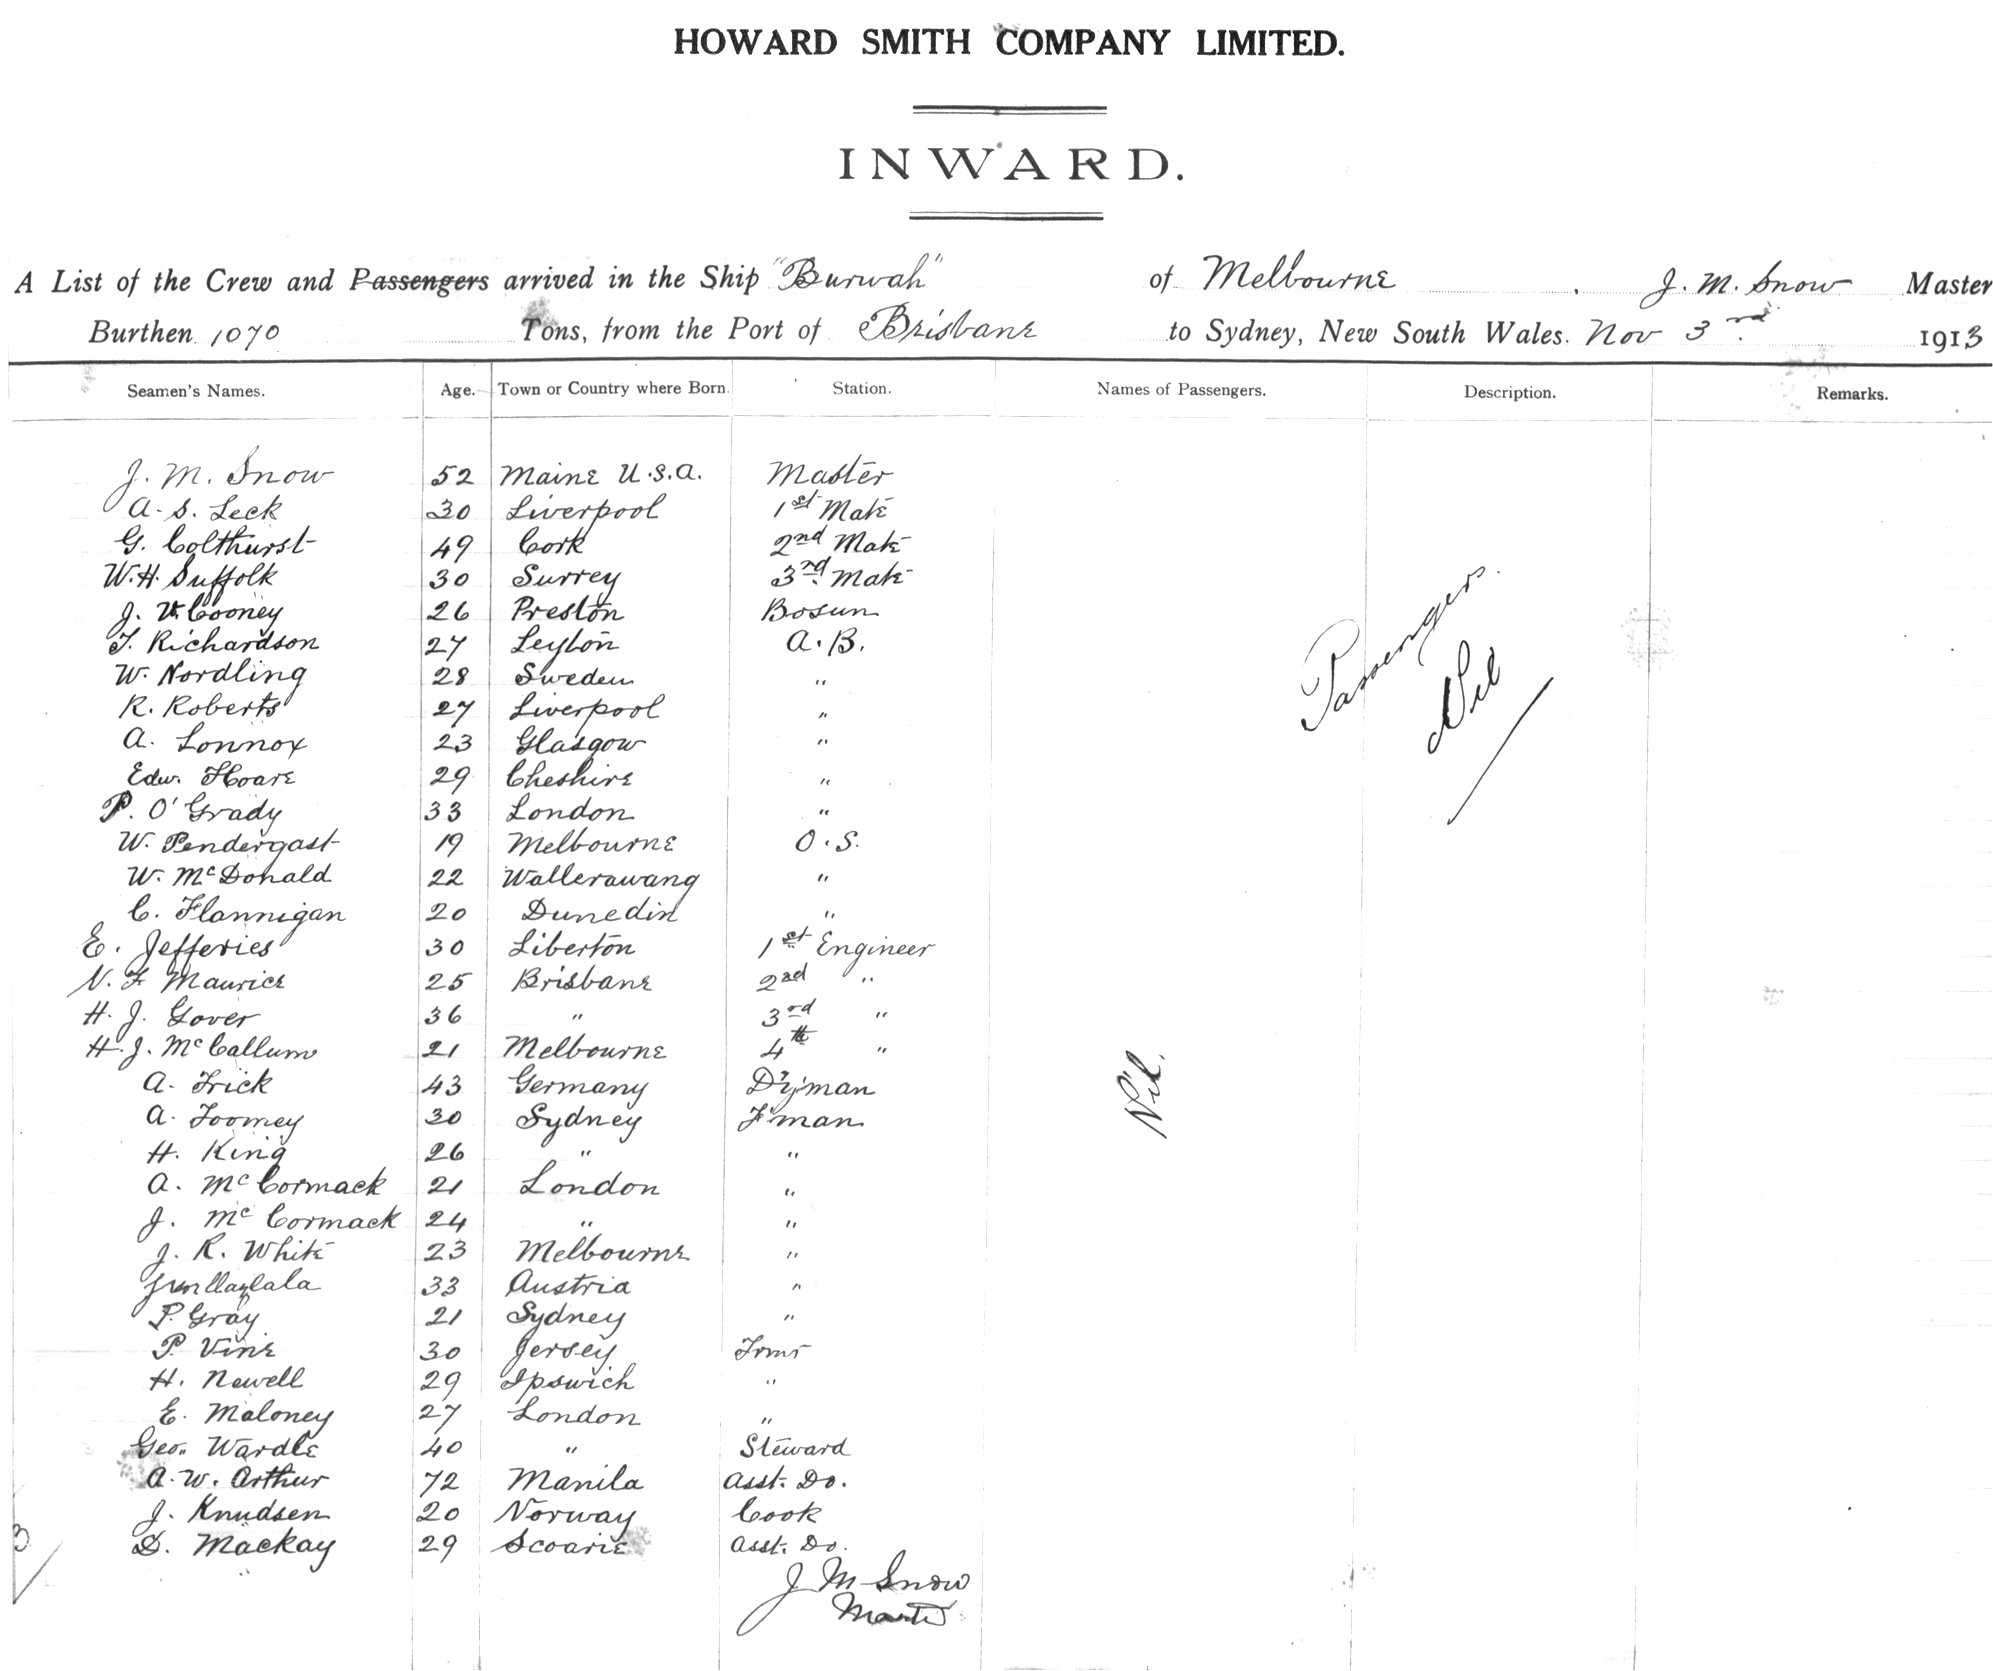 HOWARD SMITH COMPANY LIMITED.
INWARD.
A List of the Crew and Passengers arrived in the Ship "Burwah" of Melbourne . J. M. Snow Master
Burthen 1070 Tons, from the Port of Brisbane to Sydney, New South Wales. Nov 3rd. 1913
Seamen's Names. Age. Town or Country where Born. Station. Names of Passengers. Description. Remarks.
J. M. Snow 52 Maine U.S.A. Master
A. S. Leck 30 Liverpool 1st Mate
G. Colthurst 49 Cork 2nd Mate
W. H. Suffolk 30 Surrey 3rd Mate
J. Cooney 26 Preston Bosun
T. Richardson 27 Leyton A.B.
W. Nordling 28 Sweden "
R. Roberts 27 Liverpool "
A. Lonnox 23 Glasgow "
Edw. Hoare 29 Cheshire "
P. O'Grady 33 London "
W. Pendergast 19 Melbourne O.S.
W. McDonald 22 Wallerawang "
C. Flannigan 20 Dunedin "
E. Jefferies 30 Liberton 1st Engineer
N. F. Maurice 25 Brisbane 2nd "
H. J. Gover 36 " 3rd "
H. J. McCallum 21 Melbourne 4th "
A. Frick 43 Germany D'y'man
A. Toomey 30 Sydney F'man
H. King 26 " "
A. McCormack 21 London "
J. McCormack 24 " "
J. R. White 23 Melbourne "
33 Austria "
P. Gray 21 Sydney "
P. Vine 30 Jersey Trmr
H. Newell 29 Ipswich "
E. Maloney 27 London "
Geo. Wardle 40 " Steward
A. W. Arthur 72 Manila Asst. Do.
J. Knudsen 20 Norway Cook
D. Mackay 29 Scoarie Asst. Do.
J M Snow
Master
Passengers.
Nil
Nil.
3